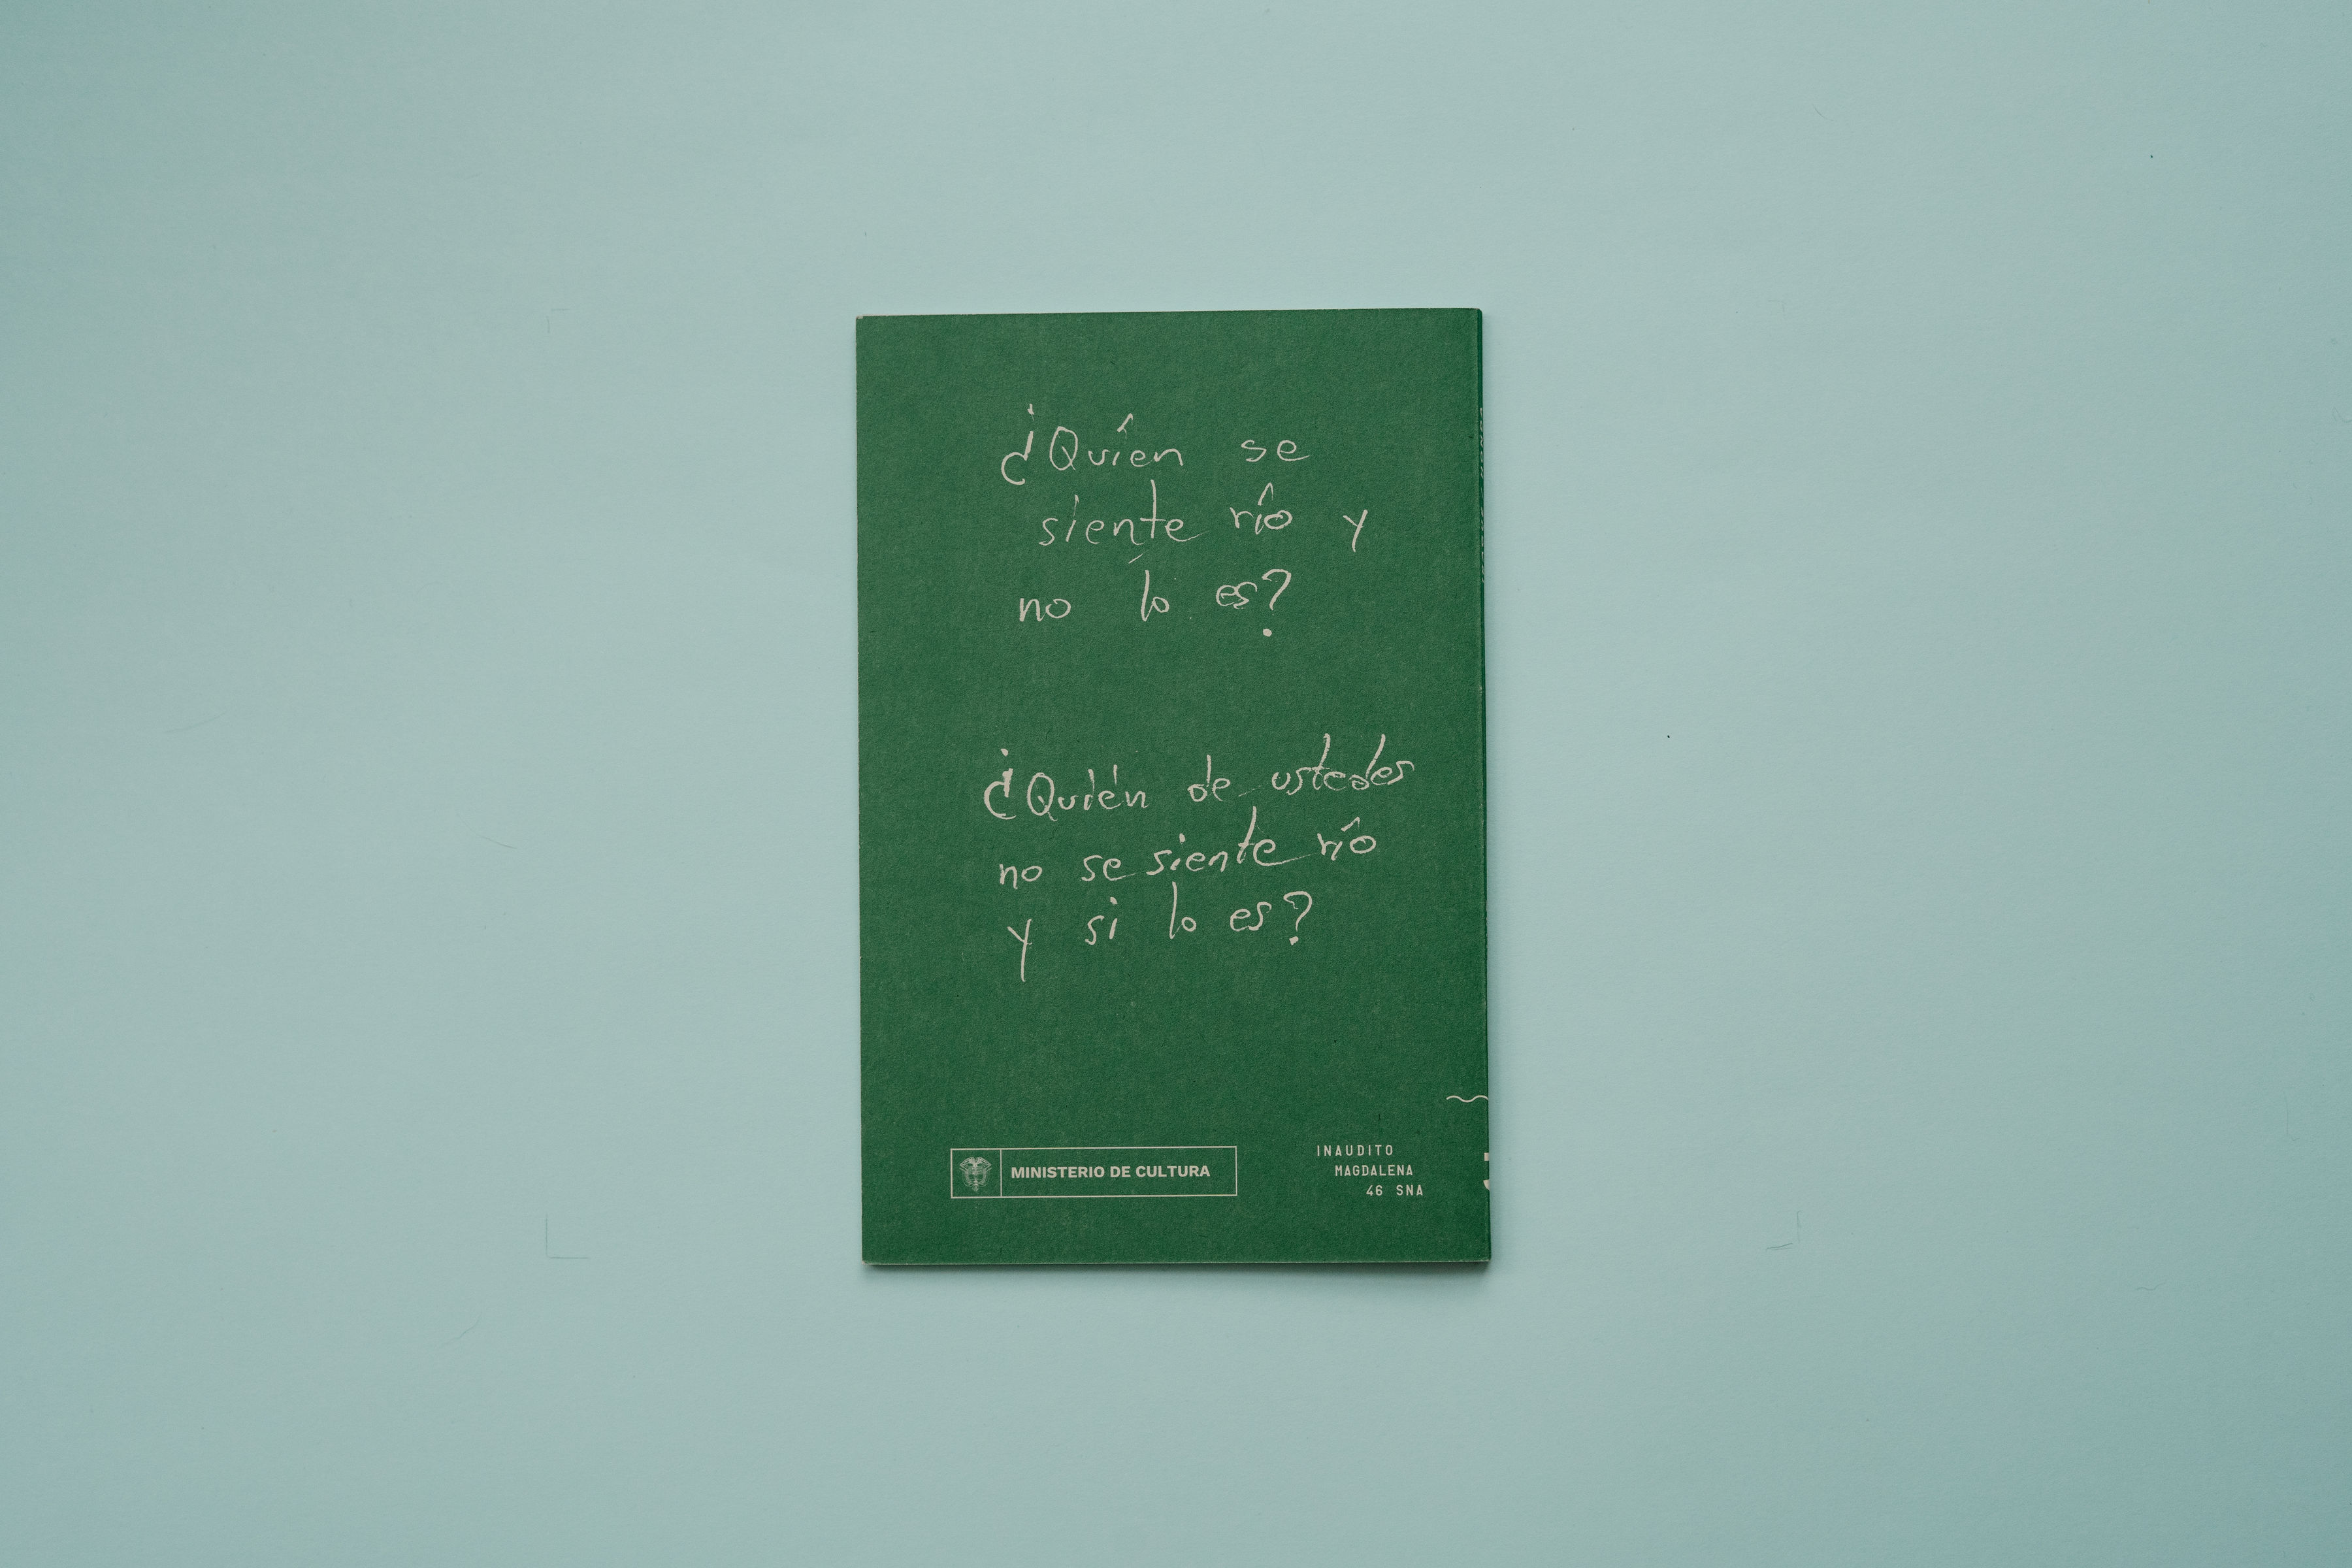 ¿Quíen se
siente río y
no lo es?
¿Quién de ustedes
no se siente río
y si lo es?
MINISTERIO DE CULTURA
INAUDITO
MAGDALENA
46 SNA